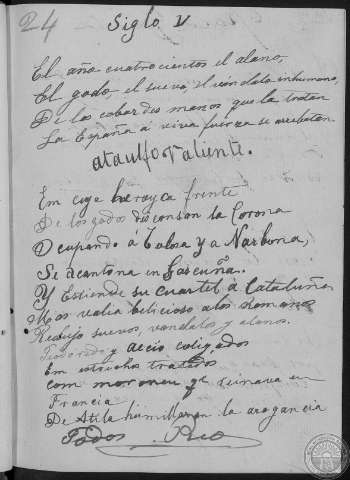 24
Siglo V
El año cuatrocientos el alano,
El godo, el suevo, el vándalo inhumano,
De las cobardes manos que la tratan
La España á viva fuerza se arrebatan
ataulfo valiente.
En cuya heroyca frente
De los godos descansan la Corona
Ocupando á Tolosa y a Narbona,
Se acantona en Gascuña.
Y Estiende su cuartel á Cataluña
Mas valia belicioso a los Romanos
Redujo suevos, vandalos y alanos.
Teodoredo y accio coligados
En estrechos tratados
com meroveu qe Reinava en
Francia
De Atila humillaron la arogancia
Todos